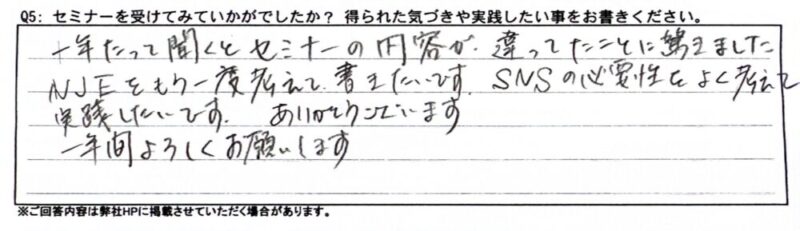 Q5: セミナーを受けてみていかがでしたか？ 得られた気づきや実践したい事をお書きください。
一年たって聞くとセミナーの内容が、違ってたことに驚きました
NJEをもう一度考えて、書きたいです。SNSの必要性をよく考えて
実践したいです。 ありがとうございます
一年間よろしくお願いします
※ご回答内容は弊社HPに掲載させていただく場合があります。